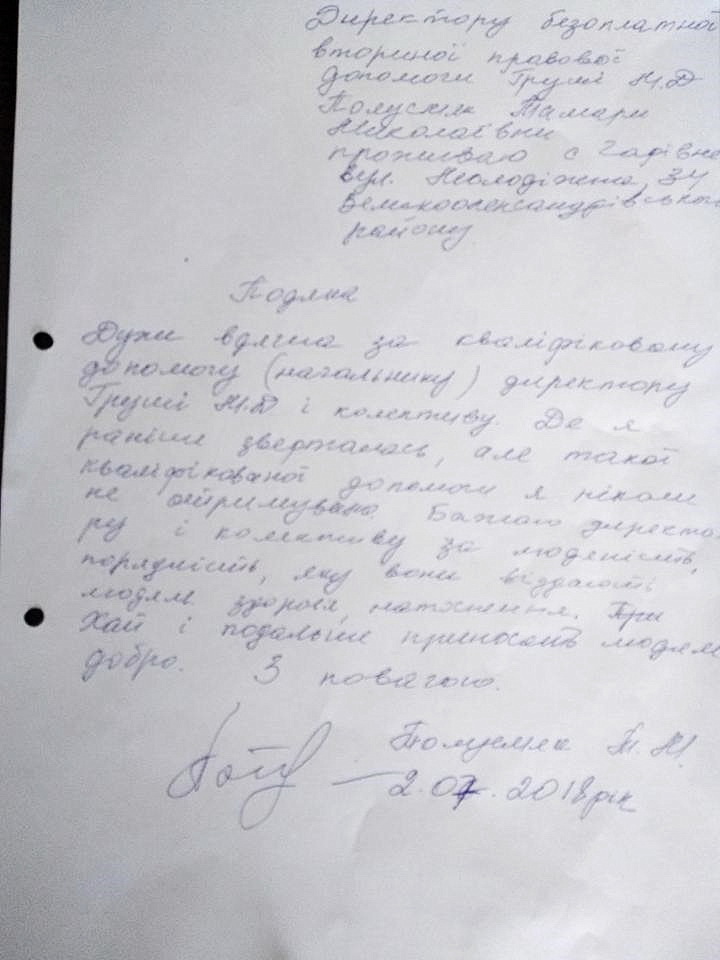 Директору безоплатної
вториної правової
допомоги Груші Н.Д
Тамари
Николаївни
проживаю с
вул. Молодіжна, 34
Великоолександрівського
району
Подяка
Дужи вдячна за кваліфіковану
допомогу (начальнику) директору
Груші Н.Д і колективу. Де я
раніше зверталась, але такої
кваліфікованої допомоги я ніколи
не отримувала. Бажаю директо
ру і колективу за людяність,
порядність, яку вони віддають
людям здоровя, натхнення. При
Хай і подальше приносять людям
добро. З повагою.
Т. М.
2.07.2018 рік